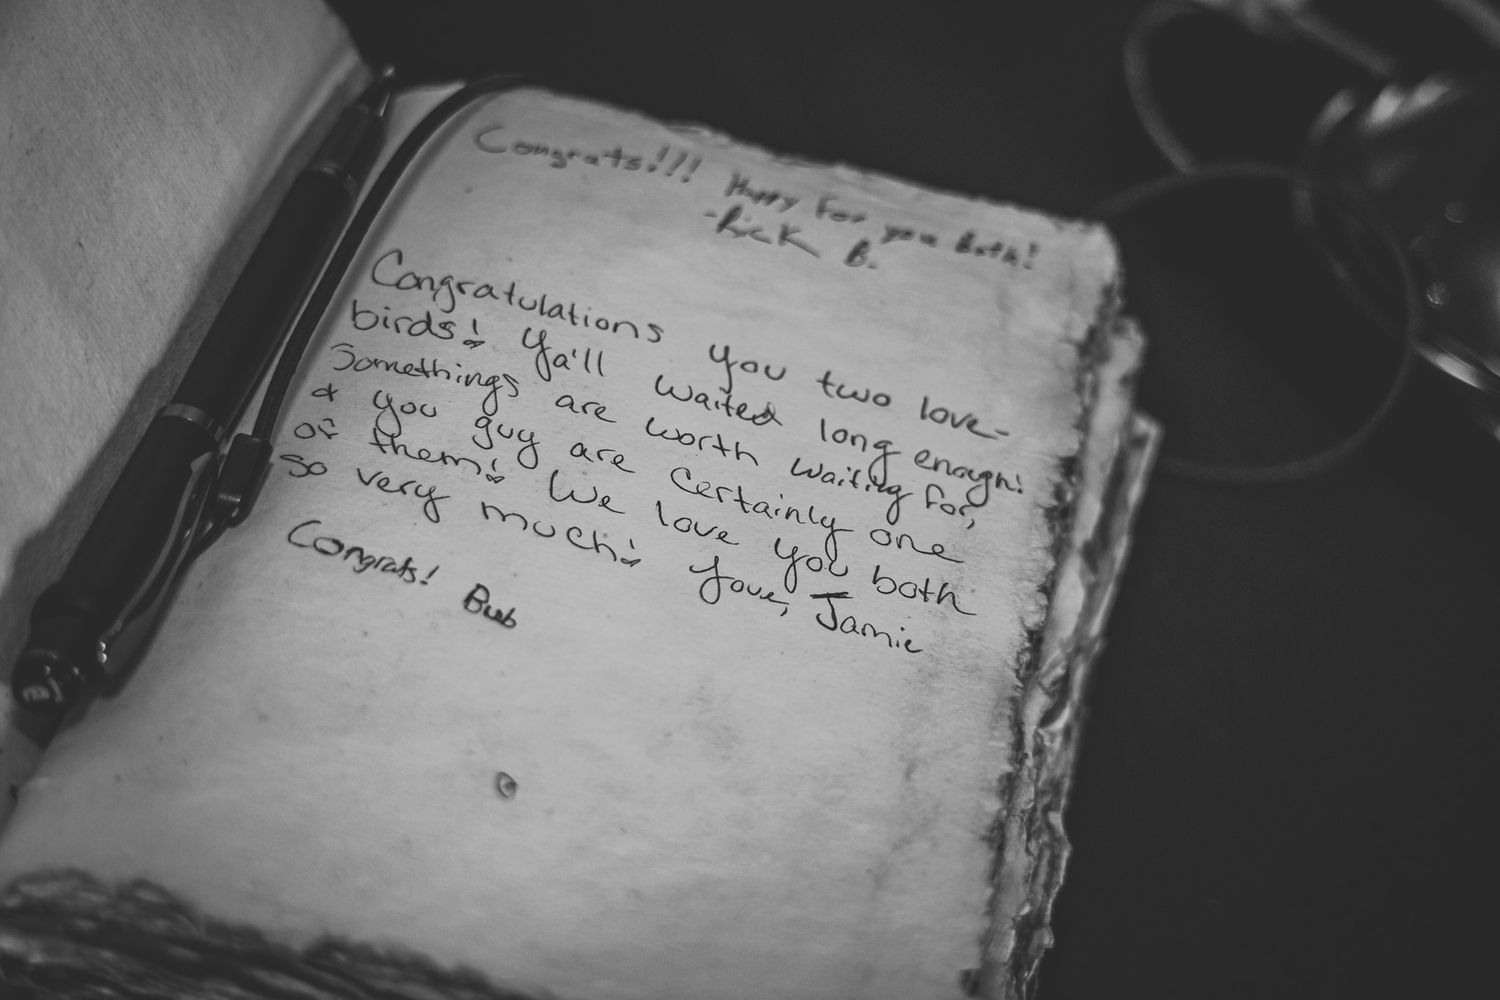 Congrats!!! Happy For you Both!
-Rick B.
Congratulations you two love-
birds! Ya'll waited long enough!
Somethings are worth waiting for,
& you guy are certainly one
of them! We love you both
so very much! Love, Jamie
Congrats! Bub